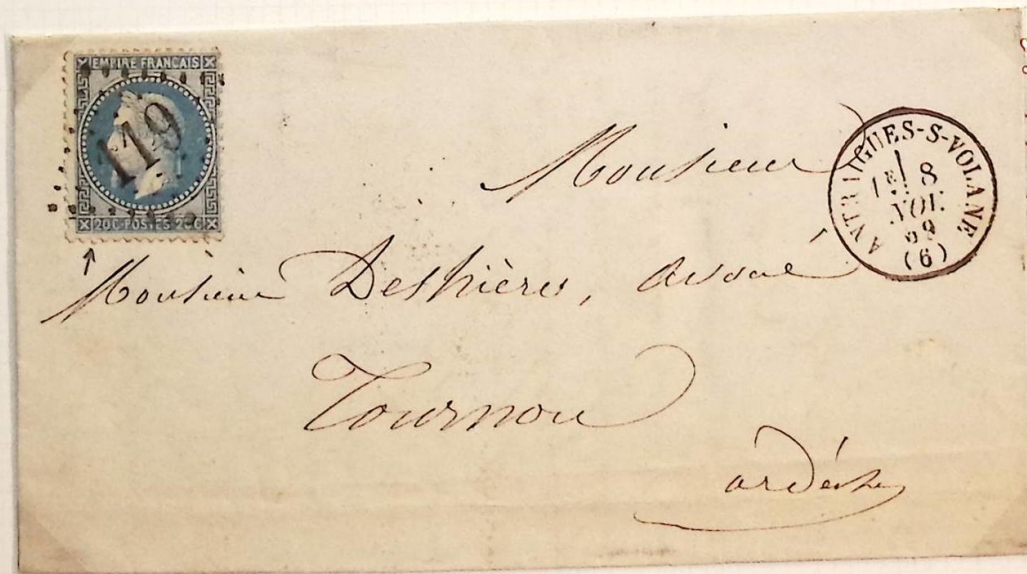 EMPIRE FRANÇAIS
119
20 C POSTES 20 C
ANTRAIGUES-S-VOLANE
1E 8
NOV.
69
(6)
Monsieur
Monsieur Desthières, avoué
Tournon
ardèche